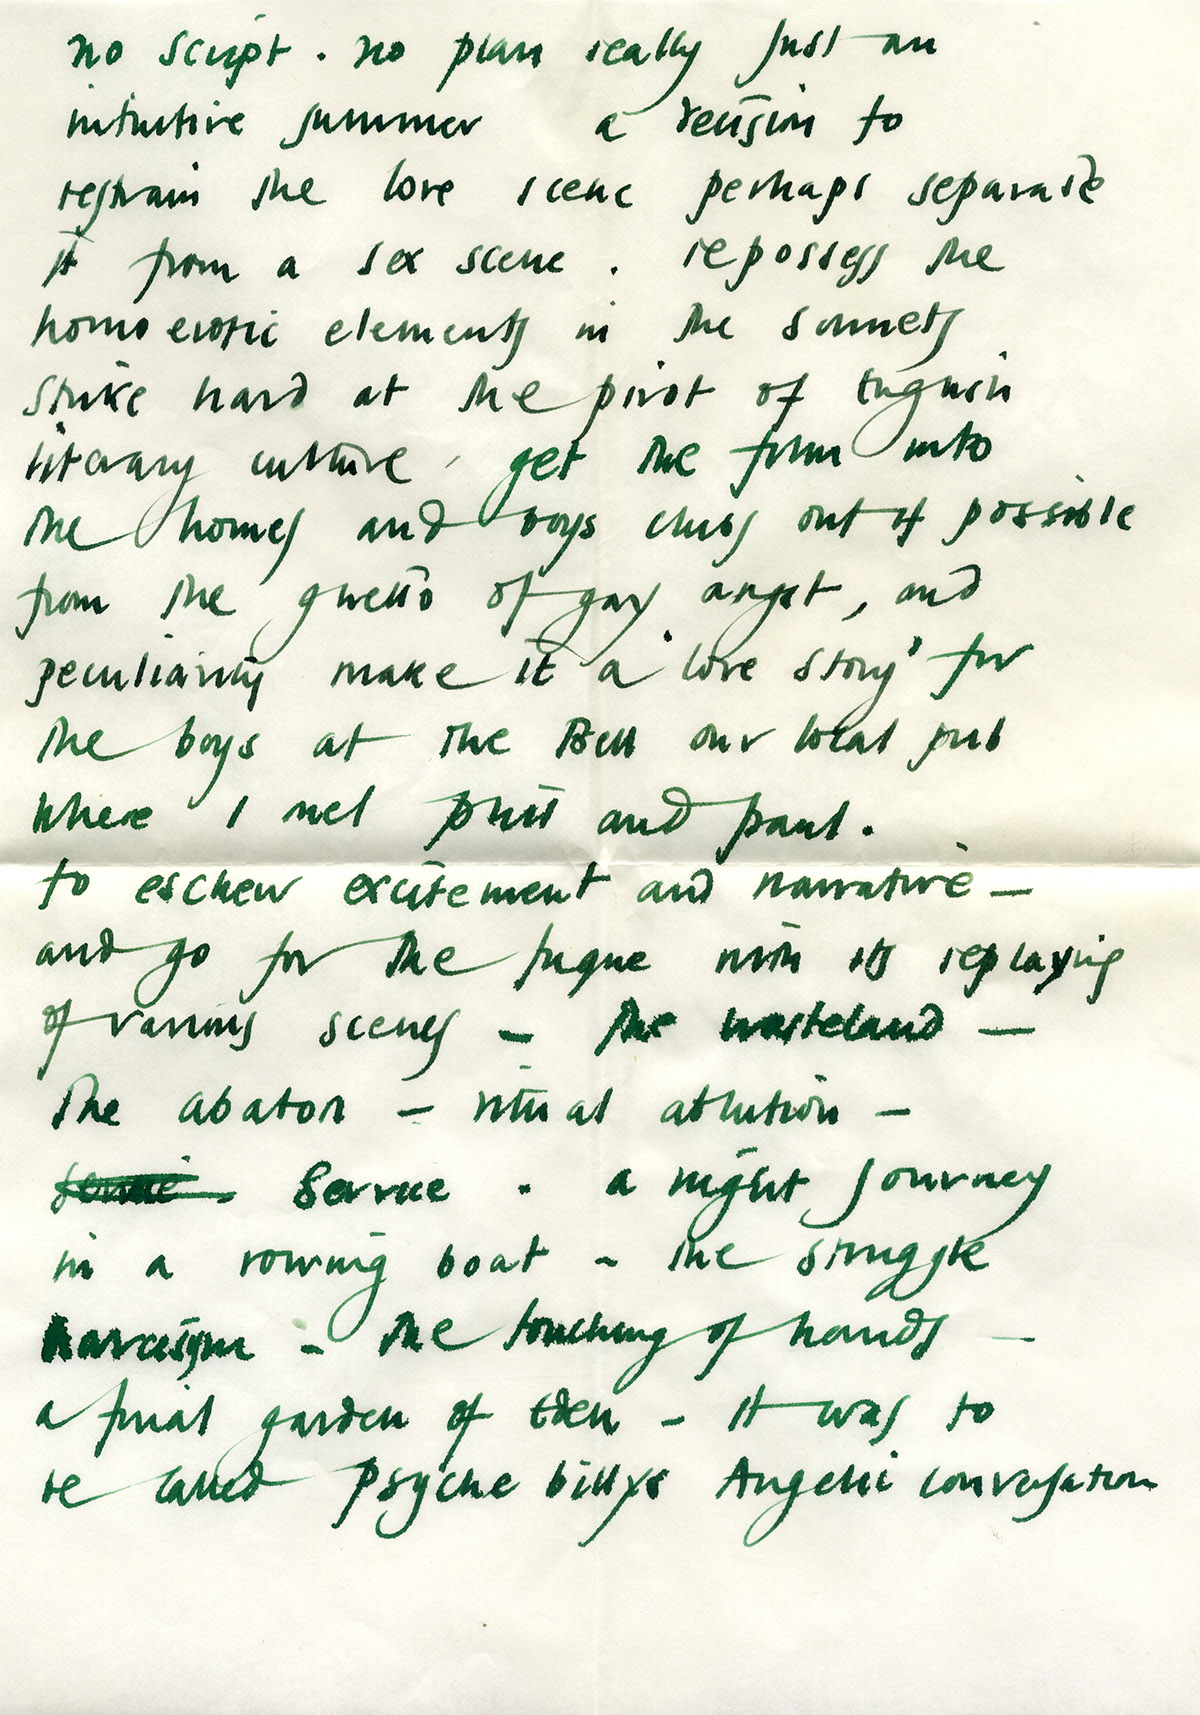 no script . no plan really just an
intuitive summer a decision to
restrain the love scene perhaps separate
it from a sex scene . repossess the
homoerotic elements in the sonnets
strike hard at the pivot of English
literary culture . get the film into
the homes and boys clubs out if possible
from the ghetto of gay angst , and
peculiarity make it a 'love story' for
the boys at the Bell our local pub
where I met and paul .
to eschew excitement and narrative —
and go for the fugue with its replaying
of various scenes – the wasteland —
The abator – ritual ablution –
Service . a night journey
in a rowing boat – the struggle
narcisism – the touching of hands –
a final garden of Eden – it was to
be called Psyche billys Angelic conversation